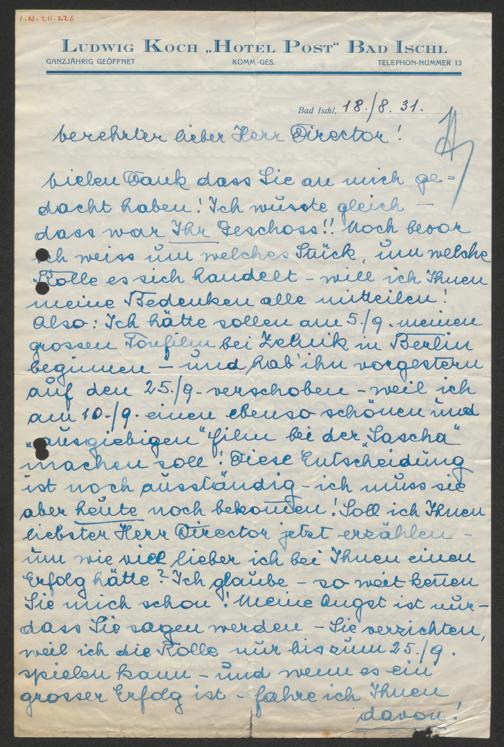 I.N. 211.226
Ludwig Koch „Hotel Post“ Bad Ischl
GANZJÄHRIG GEÖFFNET KOMM.-GES. TELEPHON-NUMMER 13
Bad Ischl, 18./8. 31.
Verehrter lieber Herr Director!
Vielen Dank dass Sie an mich ge-
dacht haben! Ich wusste gleich –
dass war Ihr Geschoss!! Noch bevor
ich weiss um welches Stück, um welche
Rolle es sich handelt – will ich Ihnen
meine Bedenken alle mitteilen!
Also: Ich hätte sollen am 5./9. meinen
grossen Tonfilm bei Zelnik in Berlin
beginnen – und hab' ihn vorgestern
auf den 25./9. verschoben – weil ich
am 10./9. einen ebenso schönen und
„ausgiebigen“ Film bei der „Sascha“
machen soll! Diese Entscheidung
ist noch ausständig – ich muss sie
aber heute noch bekommen! Soll ich Ihnen
liebster Herr Director jetzt erzählen –
um wie viel lieber ich bei Ihnen einen
Erfolg hätte? Ich glaube – so weit kennen
Sie mich schon! Meine Angst ist nur –
dass Sie sagen werden – Sie verzichten,
weil ich die Rolle nur bis zum 25./9.
spielen kann – und wenn es ein
grosser Erfolg ist – fahre ich Ihnen
davon!